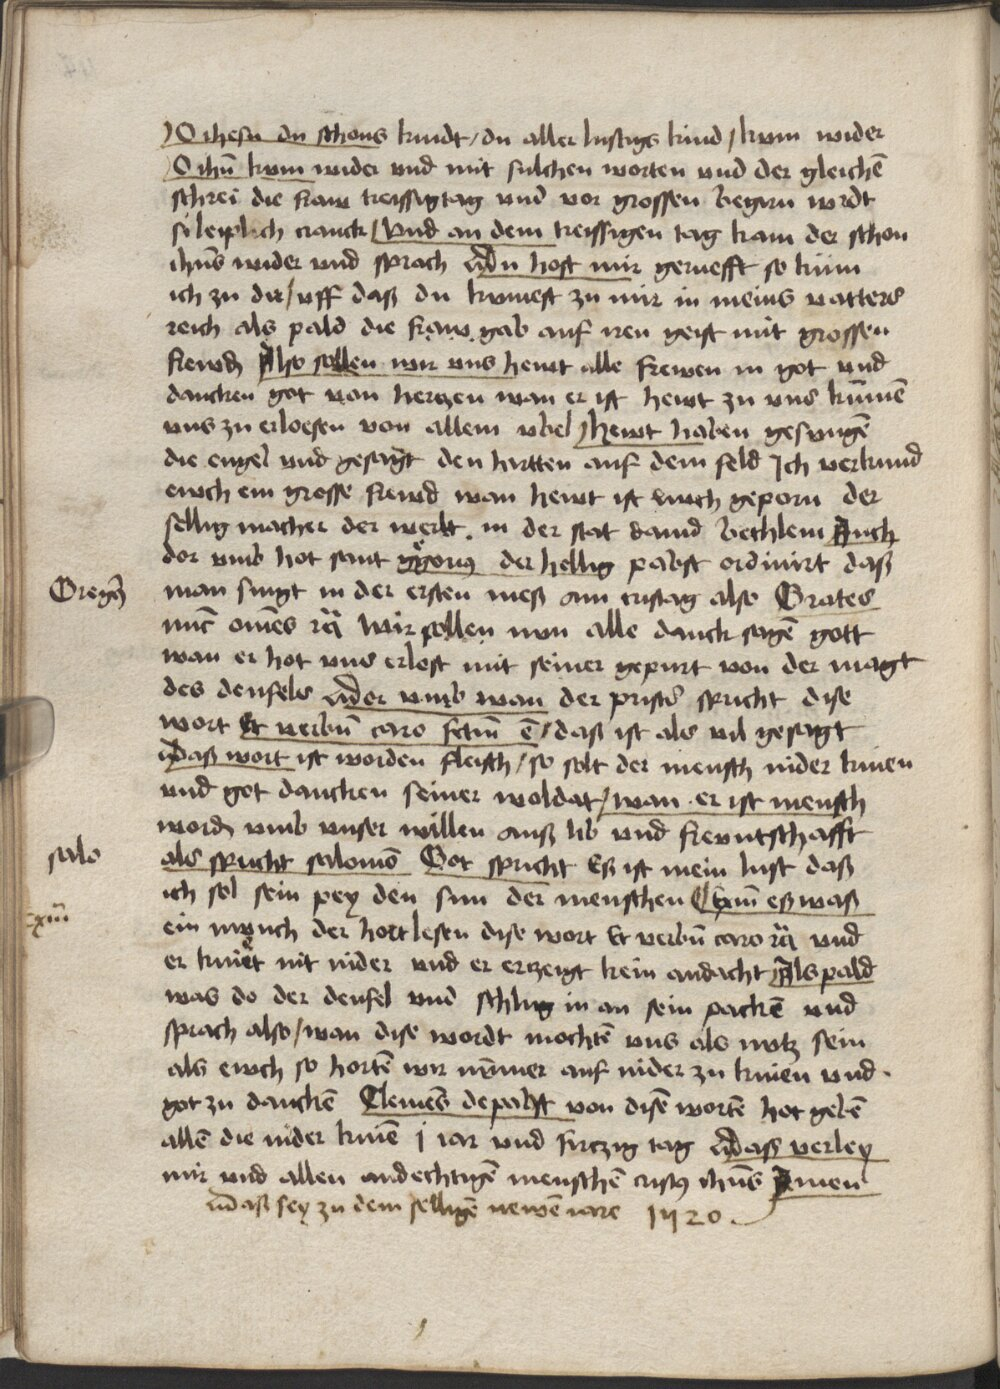 O ihesu du schons kindt / du aller lustigs kind / kum wider
O ihū kum wider und mit sulchen worten und der gleichē
schrei die fraw treissig tag und vor grossen begirn wrdt
si leiplich cranck / Und an dem treissigen tag kam der schon
ihūs wider und sprach Du host mir geruefft so kum
ich zu dir / uff daß du kumest zu mir in meins vatters
reich als pald die fraw gab auf iren geist mit grossen
frewdē Also sollen wir uns hewt alle frewen in got und
dancken got von hertzen wan er ist hewt zu uns kūmē
uns zu erloesen von allem ubel / hewt haben gesungē
die engel und gesagt den hirtten auf dem feld Ich verkund
ewch ein grosse frewd wan hewt ist ewch geporn der
sellig macher der werlt . in der stat david bethlem Auch
dor umb hot sant gͦgorius der hellig pabst ordinirt daß
Gregorꝯ
man singt in der ersten meß am cristag also Grates
nūc omēs rā Wir sollen nun alle danck sagē gott
wan er hot uns erlost mit seiner gepurt von der magt
des deufels Dor umb wan der pristē spricht dise
wort Et verbū caro fctūm ē / daß ist als vil gesagt
Daß wort ist worden fleisch / so solt der mensch nider knien
und got dancken seiner woldat / wan er ist mensch
wordē umb unser willen auß lib und frewntschafft
salo
als spricht salomō Got spricht Eß ist mein lust daß
ich sol sein pey den sun der menschen Exm̄ eß waß
Exm̄
ein munch der hort lesen dise wort Et verbū caro rā und
er kniet nit nider und er erczeigt kein andacht Als pald
was do der deufel und schlug in an sein packē und
sprach also / wan dise wordt mochtē uns als nutz sein
als ewch so hortē wir nūmer auf nider zu knien und
got zu danckē Clemēs de pabst von disē wortē hot gebē
allē die nider kniē j iar und firczig tag Daß verley
mir und allen andechtigē menschē cristꝯ ihūs Amen
Daß sey zu dem selligē newē iare 1520